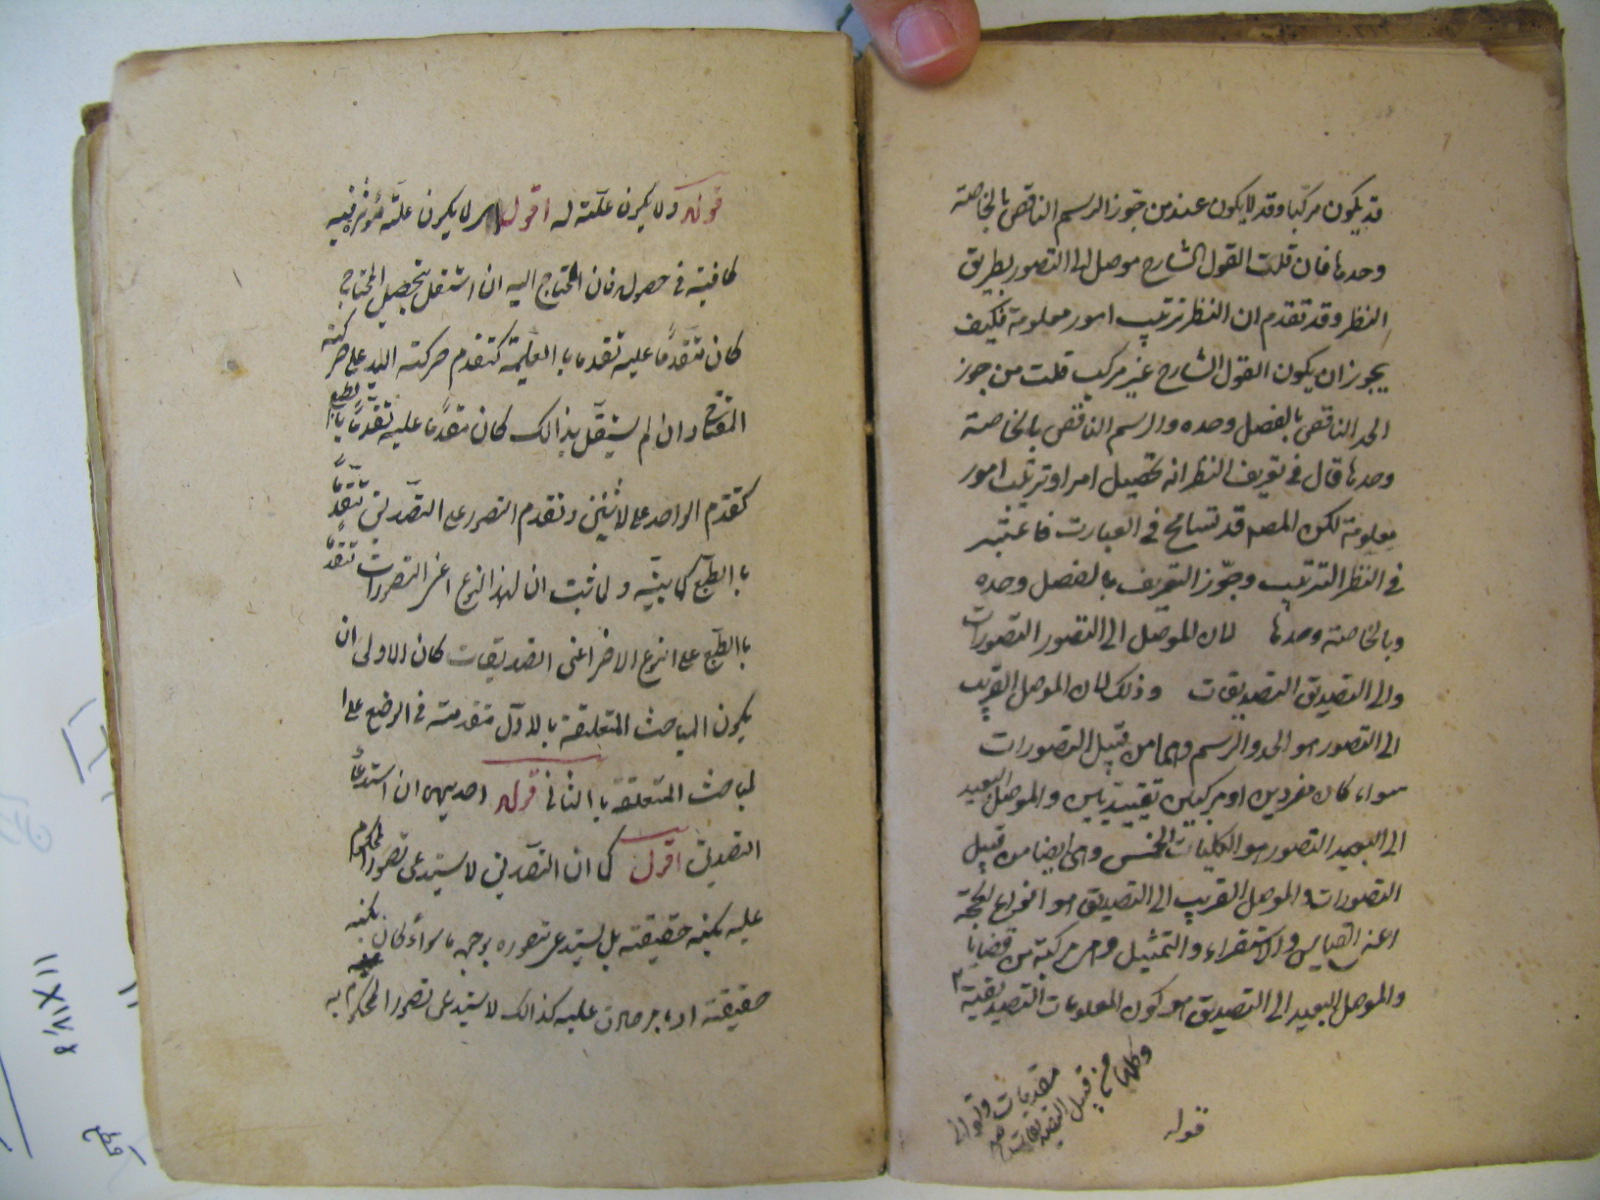 قد يكون مركبا وقد لا يكون عند من جوز الرسم الناقص بالخاصة
وحدها فان قلت القول الشارح موصل الى التصور بطريق
النظر وقد تقدم ان النظر ترتيب امور معلومة فكيف
يجوز ان يكون القول الشارح غير مركب قلت من جوز
الحد الناقص بالفصل وحده والرسم الناقص بالخاصة
وحدها قال في تعريف النظر انه تحصيل امر او ترتيب امور
معلومة لكن المصـ قد تسامح في العبارت فاعتبر
في النظر الترتيب وجوّز التعريف بالفصل وحده
وبالخاصة وحدها لان الموصل الى التصور التصورات
والى التصديق التصديقات وذلك لان الموصل القريب
الى التصور هو الحد والرسم وهما من قبيل التصورات
سواء كان مفردين او مركبين تقييديين والموصل البعيد
الى البعيد التصور هو الكليات الخمس وهى ايضا من قبيل
التصورات والموصل القريب الى التصديق هو انواع الحجة
اعنى القياس والاستقراء والتمثيل وهى مركبة من قضايا
والموصل البعيد الى التصديق هو كون المعلومات التصديقية
مقدمات وتوالى
وكلها من قبيل التصديقات
قوله
قوله ولا يكون علة له اقول اى لا يكون علة مؤثرة فيه
كافية فى حصوله فان المحتاج اليه ان استقل بتحصيل المحتاج
كان متقدمًا عليه تقدما باالعلية كتقدم حركة اليد على حركة
المفتاح وان لم يستقل بذالك كان متقدمًا عليه تقدّمًا باالطبع
كتقدم الواحد على الاثنين وتقدم التصور على التصديق تقدمًا
باالطبع كما بيّنه ولما ثبت ان لهذا النوع اعنى التصورات تقدمًا
باالطبع على النوع الاخر اعنى التصديقات كان الاولى ان
يكون المباحث المتعلقة بالاوّل متقدمة فى الوضع على ا
لمباحث المتعلقة باالثانى قوله احديهما ان استدعاء
التصديق اقول كما ان التصديق لا يستدعى تصور المحكوم
عليه بكنه حقيقته بل يستدعى تصوره بوجه ما سواء كان بكنه
حقيقته او بامر صادق عليه كذالك لا يستدعى تصور المحكوم به